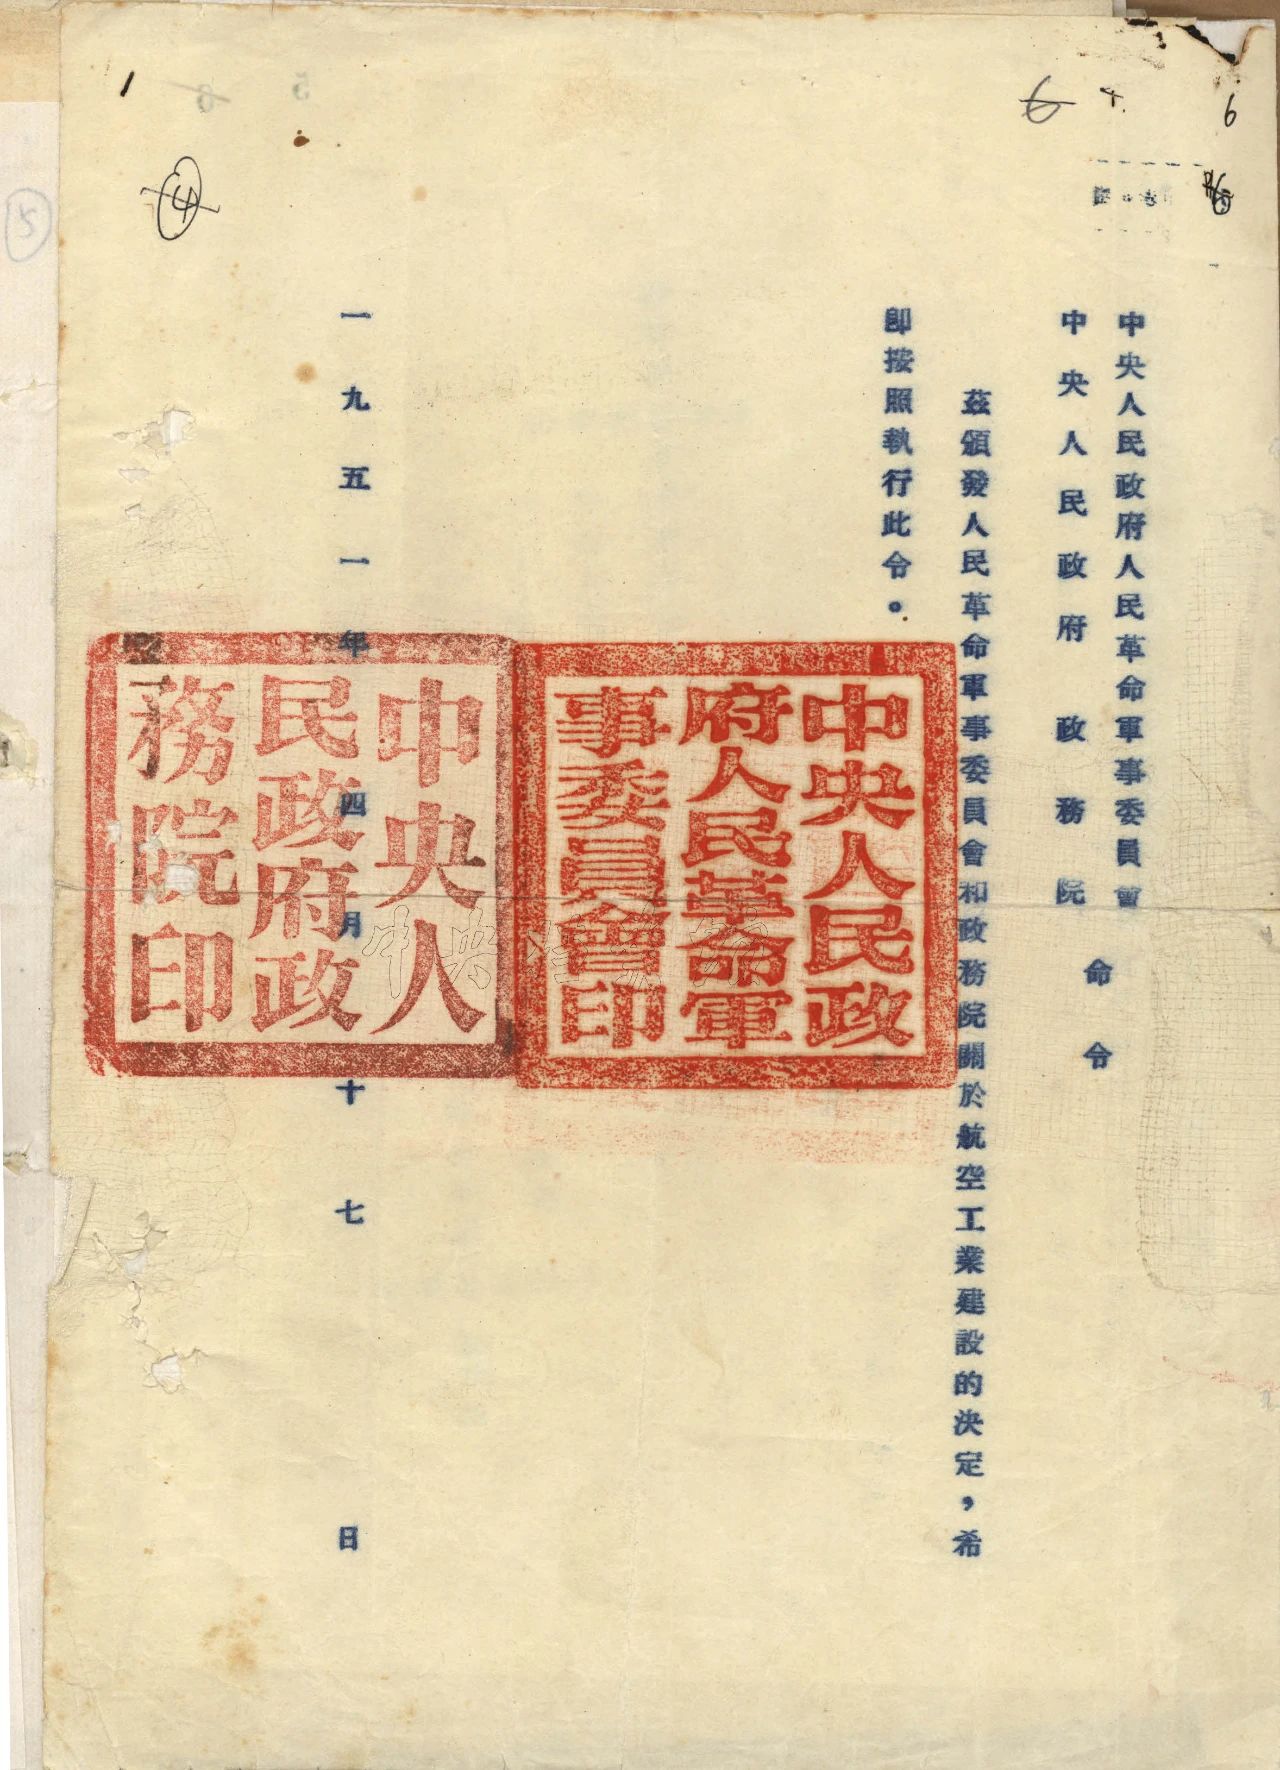 中央人民政府人民革命軍事委員會
中央人民政府政務院
命令
茲頒發人民革命軍事委員會和政務院關於航空工業建設的決定，希
即按照執行此令。
一九五一年四月十七日
中央人民政
府人民革命軍
事委員會印
中央人
民政府政
務院印
中央档案馆
1
4
5
6
4
6